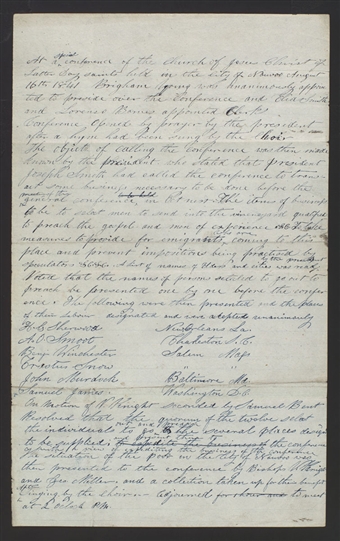 At a special conference of the Church of Jesus Christ of
Latter Day saints held in the city of Nauvoo August
16th 1841 Brigham Young was unanimously appoin
ted to preside over the conference and Elias Smith
and Lorenzo Barnes appointed Clerks
Conference Opened by prayer by the president
after a hymn had been sung by the Choir
The objects of calling the Conference was then made
known by the president who stated that president
Joseph Smith had called the conference to trans-
act some business necessary to be done before the
general conference, in Oct next The items of business
to be to select men to send into the vineyard qualified
to preach the gospel and men of experience
measures to provide for emigrants coming to this
place and prevent impositions being practiced by
speculators
Voted that the names of persons selected to go out to
preach be presented one by one before the confer
ence The following were then presented and the places
of their labour designated and were accepted unanimously
H. G. Sherwood New Orleans La.
A.O. Smoot Charleston S.C.
Benj. Winchester Salem Mass
Erastus Snow " "
John Murdock Baltimore Md
Samuel James Washington D.C
On Motion of V. Knight seconded by Samuel Bent
Resolved that the quorum of the twelve select
the individuals to go to the several places desig
to be supplied, to expedite the business of the conference
The situation of the poor in the city of Nauvoo was
then presented to the conference by Bishops V. Knight
and Geo Miller and a collection taken up for their benefit
Singing by the choir adjourned to meet
at 2 o'clock P.M.